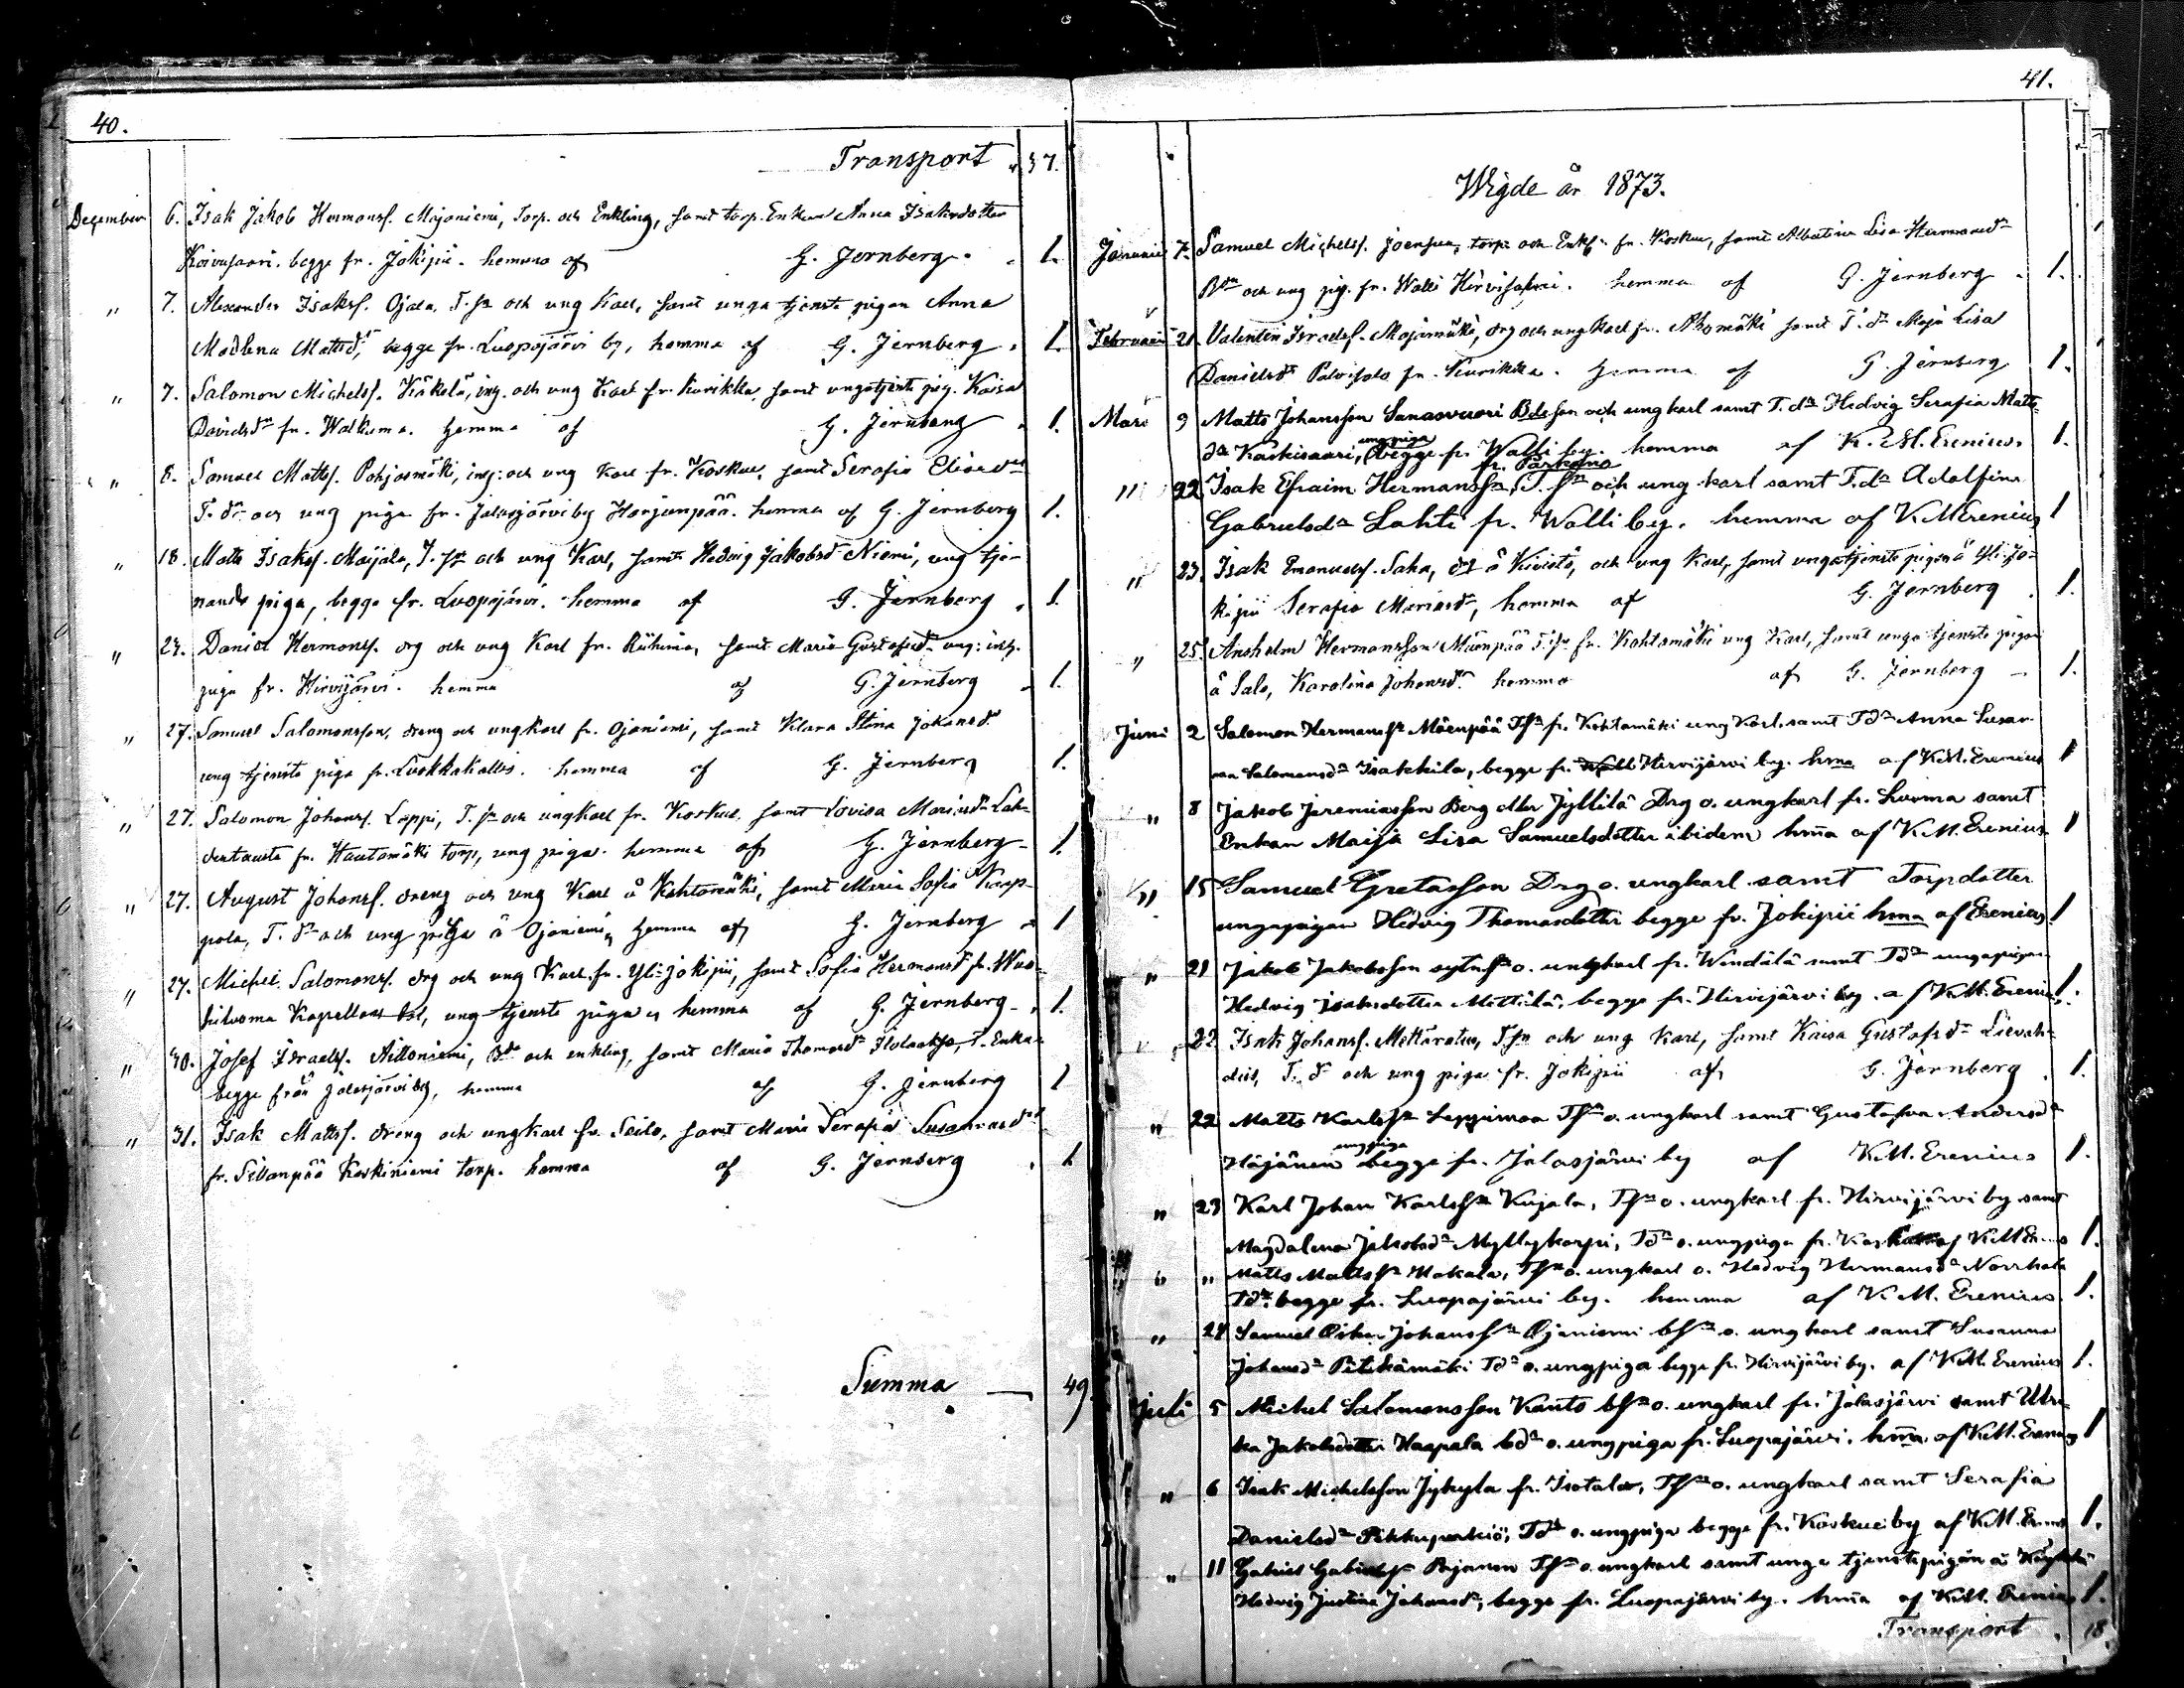 40.
Transport " 37.
December 6. Isak Jakob Hermansf. Majaniemi, Torp. och Enkling, samt torp. Enkan Anna Isaksdotter
Koivusaari. begge fr. Jokipii. hemma af G. Jernberg. 1.
" 7. Alexander Isaksf. Ojala, T. sn och ung Karl, samt unga tjenste pigan Anna
Madlena Mattsdr, begge fr. Luopajärvi by, hemma af G. Jernberg. 1.
" 7. Salomon Michelsf. Käkelä, ing. och ung Karl fr. Kurikka, samt unga tjenste pig. Kaisa
Davidsdr fr. Walkuma. hemma af G. Jernberg 1.
" 8. Samuel Mattsf. Pohjasmäki, ing: och ung Karl fr. Koskue, samt Serafia Eliaedr
T. dr och ung piga fr. Jalasjärvi by Harjunpää. hemma af G. Jernberg 1.
" 18. Matts Isaksf. Maijala, T. sn och ung Karl, samt Hedvig Jakobsdr Niemi, ung tje-
nande piga, begge fr. Luopajärvi. hemma af G. Jernberg 1.
" 24. Daniel Hermansf. drg och ung Karl fr. samt Maria Gustafsdr ung: inh.
piga fr. Hirvijärvi. hemma af G. Jernberg 1.
" 27. Samuel Salomonsson, dreng och ungkarl fr. Ojaniemi, samt Klara Stina Johansdr
ung tjenste piga fr. Luokkakallio. hemma af G. Jernberg 1.
" 27. Salomon Johansf. Lappi, T. sn och ungkarl fr. Koskue. samt Lovisa Mariasdr Lah-
dentausta fr. Hautamäki torp, ung piga. hemma af G. Jernberg 1.
" 27. August Johansf. dreng och ung Karl å Kohtamäki, samt Maria Sofia Kaap-
pola, T. dr och ung piga å Ojaniemi, hemma af G. Jernberg 1
" 27. Michel Salomonsf. drg och ung Karl fr. Yli-jokipii, samt Sofia Hermansdr fr.
Kapellans bst, ung tjenste piga hemma af G. Jernberg 1.
" 30. Josef Israelsf. Aittoniemi, Bde och enkling, samt Maria Thomasdr T. Enka
begge från Jalasjärvi by, hemma af G. Jernberg 1
" 31. Isak Mattsf. dreng och ungkarl fr. Seilo, samt Maria Serafia Susannasdr
fr. Sillanpää Koskiniemi torp. hemma af G. Jernberg 1
Summa 49.
41.
Wigde år 1873.
Januari 7. Samuel Michelsf. Joensuu, torp. och Enkl. fr. Koskue, samt Albertina Lisa Hermansdr
Bdr och ung pig. fr. Walli Hirvisaari. hemma af G. Jernberg 1.
Februari 21. Valentin Israelsf. Majamäki, drg och ung Karl fr. Ahomäki samt T. dr Maja Lisa
Danielsdr Palvisalo fr. Kurikka. hemma af G. Jernberg 1.
Mars 9 Matts Johansson Sanasvuori Bdeson och ungkarl samt T. dr Hedvig Serafia Matts-
dr Kaskisaari, ungpiga begge fr. Walli by. hemma af K. M. Erenius 1.
" 22. Isak Efraim Hermanssn, fr. Parkano T. sn och ung karl samt T. dr Adolfina
Gabrielsdr Lahti fr. Walli by. hemma af K M Erenius 1
" 23. Isak Emanuelsf. Saha, drg å Kivistö, och ung Karl, samt unga tjenste pigan å Yli-jo-
kipii Serafia Mariasdr, hemma af G. Jernberg 1.
" 25. Anshelm Hermansson Mäenpää T. sn fr. Kohtamäki ung Karl, samt unga tjenste pigan
å Salo, Karolina Johansdr hemma af G. Jernberg 1.
Juni 2 Salomon Hermanssn Mäenpää Tsn fr. Kohtamäki ung karl samt Tdr Anna Susan-
na Salomonsdr Isakkila, begge fr. Hirvijärvi by. hma af K. M. Erenius 1
" 8 Jakob Jeremiasson Berg eller Jyllilä Drg o. ungkarl fr. Luoma samt
Enkan Maija Lisa Samuelsdotter ibidem hma af K. M. Erenius 1
" 15 Samuel Gretasson Drg o. ungkarl samt Torpdotter
ungapigan Hedvig Thomasdotter begge fr. Jokipii hma af Erenius 1
" 21 Jakob Jakobsson sytnsn o. ungkarl fr. Wendälä samt Tdr ungapigan
Hedvig Isaksdotter Mettälä, begge fr. Hirvijärvi by. af K. M. Erenius 1.
" 22 Isak Johansf. Mettäratio, T. sn och ung Karl, samt Kaisa Gustafsdr
T. dr och ung piga fr. Jokipii af G. Jernberg 1.
" 22 Matts Karlssn Leppimaa Tsn o. ungkarl samt Gustafva Andersdr
Häjänen ungpiga begge fr. Jalasjärvi by af K. M. Erenius 1.
" 23 Karl Johan Karlssn Kujala, Tsn o. ungkarl fr. Hirvijärvi by samt
Magdalena Jakobsdr Myllykorpi, Tdr o. ungpiga fr. af K M 1.
" " Matts Mattssn Makala, Tsn o. ungkarl o. Hedvig Hermansdr
Tdr. begge fr. Luopajärvi by. hemma af K. M. Erenius 1.
" 24 Samuel Johanssn Ojaniemi bsn o. ungkarl samt Susanna
Johansdr Pitkämäki Tdr o. ungpiga begge fr. Hirvijärvi by. af K. M. Erenius 1.
Juli 5 Michel Salomonsson Kauto bsn o. ungkarl fr. Jalasjärvi samt Ulri-
ka Jakobsdotter Haapala bdr o. ungpiga fr. Luopajärvi. hma af K. M. Erenius 1
" 6 Isak Michelsson Jykyla fr. Isotalo, Tsn o. ungkarl samt Serafia
Danielsdr Tdr o. ungpiga begge fr. Koskue by af K. M. Erenius 1.
" 11 Gabriel Gabrielssn Pajanen Tsn o. ungkarl samt unge tjenstepigan å
Hedvig Justina Johansdr, begge fr. Luopajärvi by. hma af K. M. Erenius 1.
Transport 18.